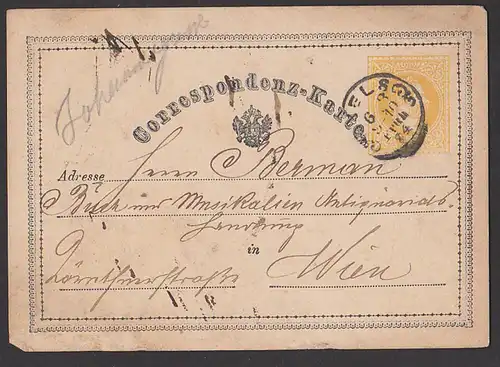 Correspondenz-Karte.
Adresse Herrn Berman
Buch und Musikalien Antiquariats
Handlung
in
Kärnthnerstraße Wien
WELS
6 3
74